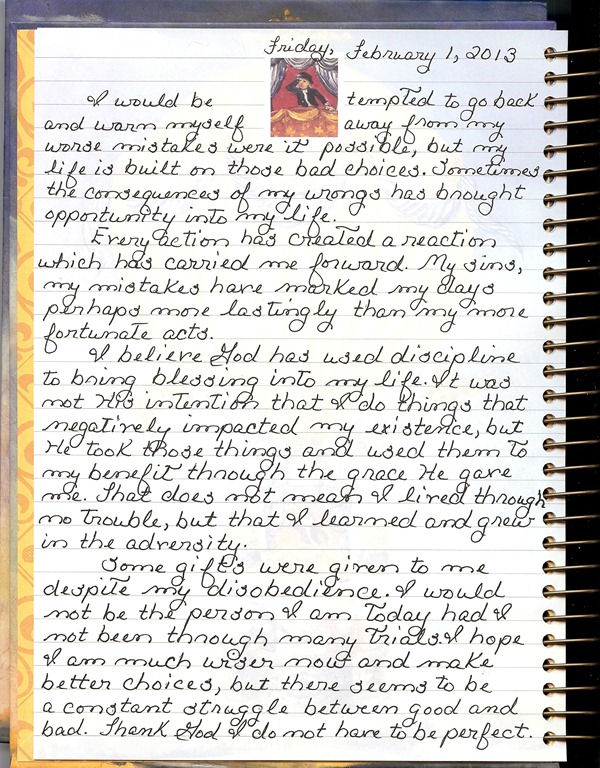 Friday, February 1, 2013
I would be tempted to go back
and warn myself away from my
worse mistakes were it possible, but my
life is built on those bad choices. Sometimes
the consequences of my wrongs has brought
opportunity into my life.
Every action has created a reaction
which has carried me forward. My sins,
my mistakes have marked my days
perhaps more lastingly than my more
fortunate acts.
I believe God has used discipline
to bring blessing into my life. It was
not His intention that I do things that
negatively impacted my existence, but
He took those things and used them to
my benefit through the grace He gave
me. That does not mean I lived through
no trouble, but that I learned and grew
in the adversity.
Some gifts were given to me
despite my disobedience. I would
not be the person I am today had I
not been through many trials. I hope
I am much wiser now and make
better choices, but there seems to be
a constant struggle between good and
bad. Thank God I do not have to be perfect.